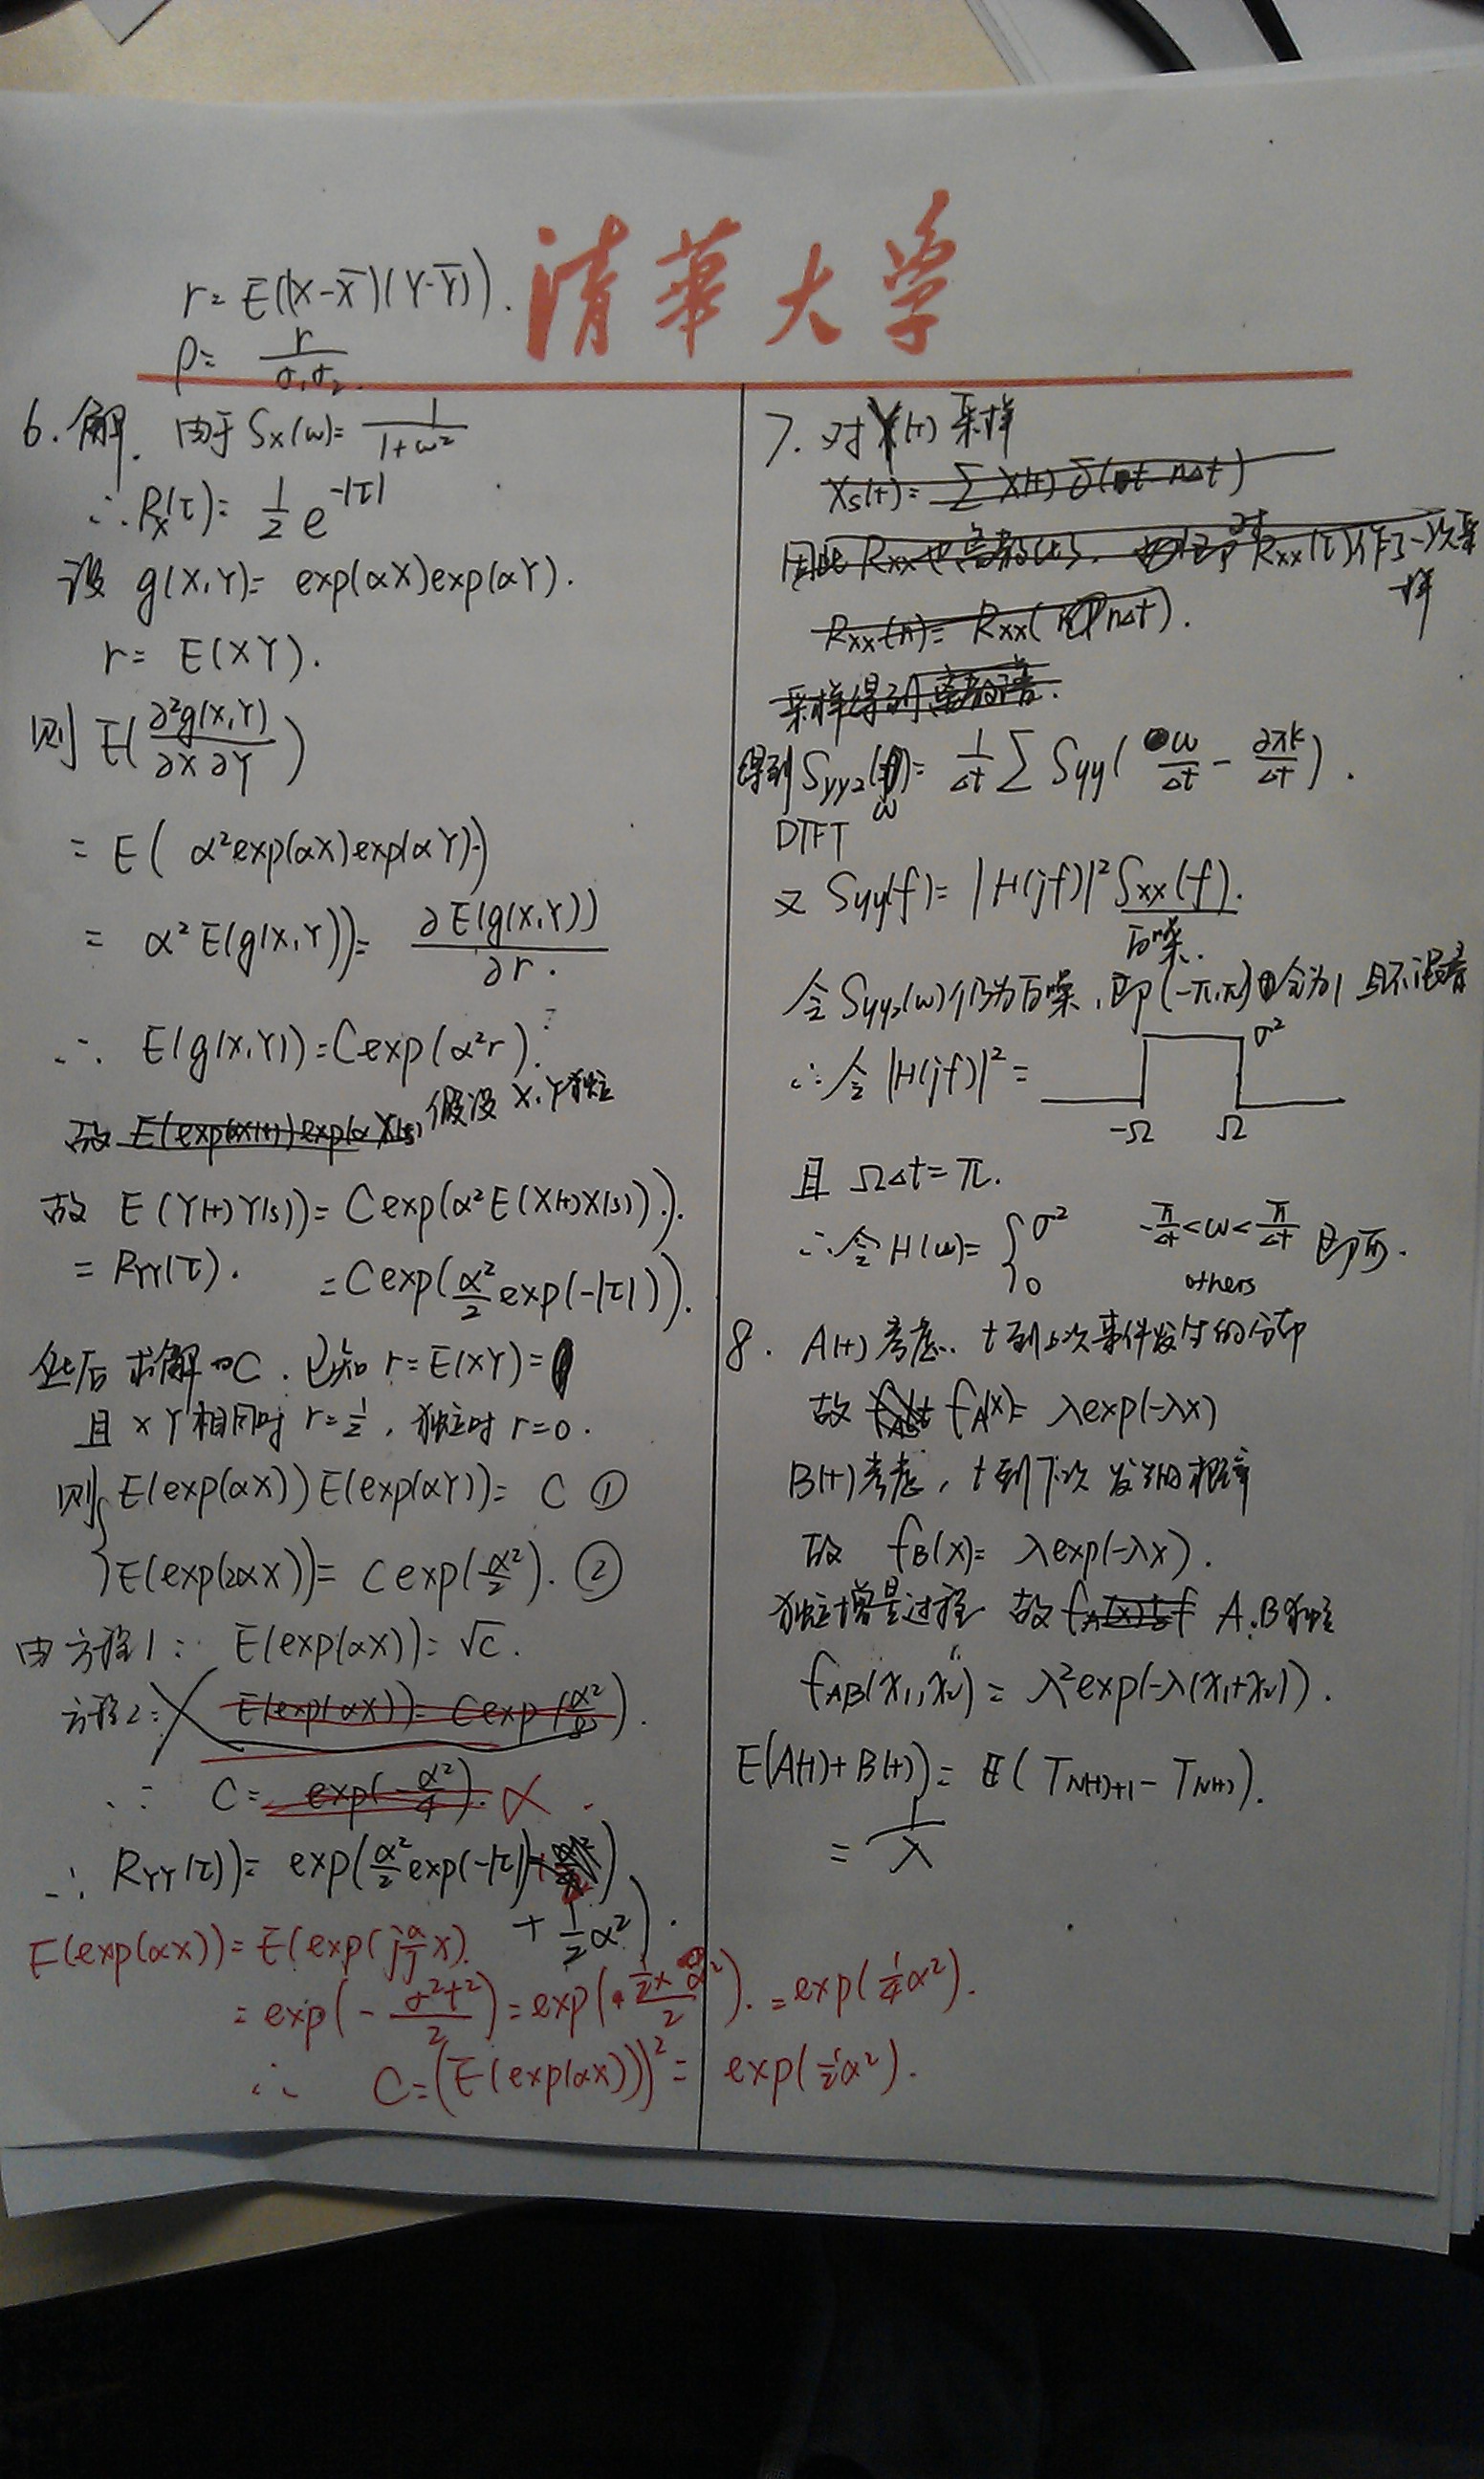 r= E((X-X̄)(Y-Ȳ)).
清華大学
ρ= r/σ₁σ₂.
6. 解. 由于 Sx(ω)= 1/(1+ω²)
∴ Rx(τ)= 1/2 e^(-|τ|)
设 g(X,Y)= exp(αX)exp(αY).
r= E(XY).
则 E(∂²g(X,Y)/∂X∂Y)
= E( α²exp(αX)exp(αY))
= α² E(g(X,Y))= ∂E(g(X,Y))/∂r.
∴ E(g(X,Y))=Cexp(α²r).
故 E(exp(αX(t))exp(αX(s)) 假设 X,Y独立
故 E(Y(t)Y(s))= Cexp(α²E(X(t)X(s))).
= RYY(τ). =Cexp(α²/2 exp(-|τ|)).
然后求解C. 已知 r=E(XY)=
且 XY相同时 r=1/2, 独立时 r=0.
则{ E(exp(αX))E(exp(αY))= C ①
E(exp(2αX))= Cexp(α²/2). ②
由方程1: E(exp(αX))=√C.
方程2: E(exp(αX))= Cexp(α²/8).
∴ C= exp(-α²/4).
∴ RYY(τ)= exp(α²/2 exp(-|τ|)
+ 1/2 α²).
E(exp(αX))= E(exp(j α/j X).
= exp(- σ²t²/2)= exp(+ 1/2×α²/2). = exp(1/4 α²).
∴ C=(E(exp(αX)))²= exp(1/2 α²).
7. 对Y(t)采样
Xs(t)= ΣX(t)δ(t-nΔt)
因此Rxx也离散化, 也即对Rxx(τ)作了一次采样
Rxx(n)= Rxx(nΔt).
采样得到离散谱.
得到Syy2(ω)= 1/Δt Σ Syy( ω/Δt - 2πk/Δt ).
DTFT
又 Syy(f)= |H(jf)|² Sxx(f).
白噪.
令Syy2(ω)仍为白噪, 即(-π,π)全为1 且不混叠
∴令 |H(jf)|² = σ²
-Ω Ω
且 ΩΔt=π.
∴令H(ω)= { σ² -π/Δt<ω<π/Δt 即可.
0 others
8. A(t)考虑. t到上次事件发生的分布
故 fA(x)= λexp(-λx)
B(t)考虑, t到下次发生的概率
故 fB(x)= λexp(-λx).
独立增量过程 故 A.B独立
fAB(x₁,x₂)= λ²exp(-λ(x₁+x₂)).
E(A(t)+B(t))= E( T_N(t)+1 - T_N(t)).
= 1/λ